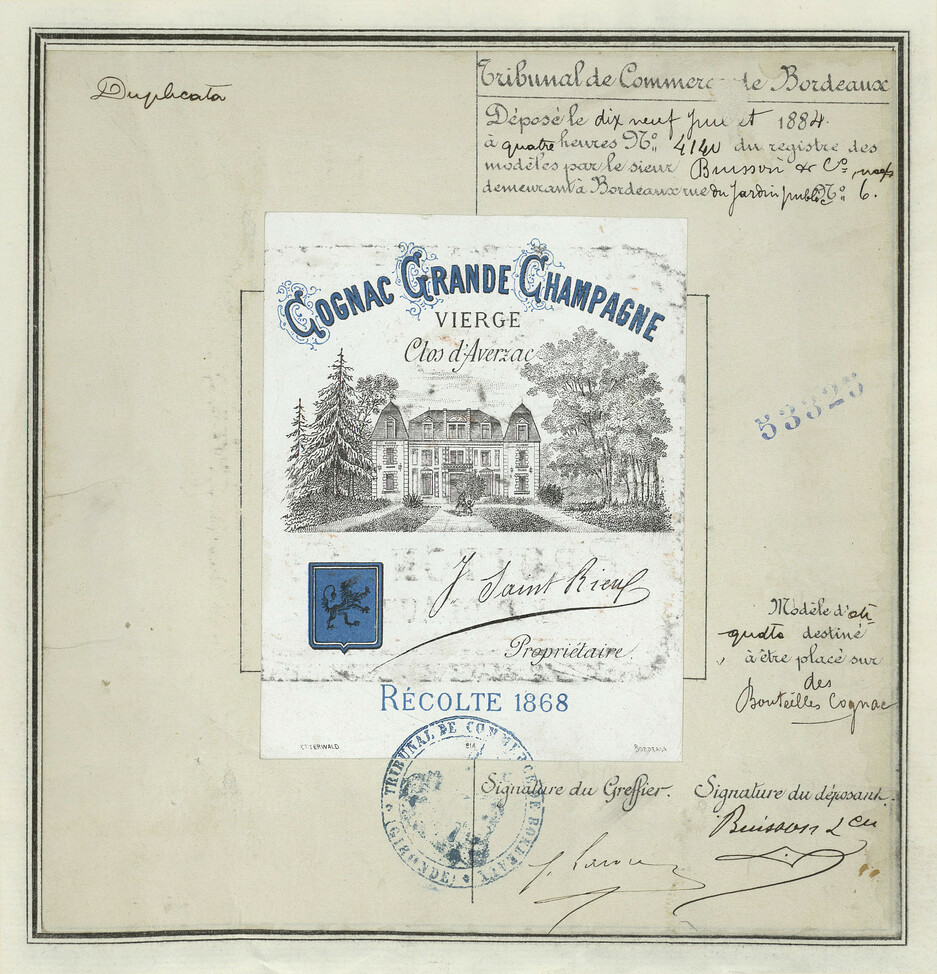 Duplicata
Tribunal de Commerce de Bordeaux
Déposé le dix neuf Juillet 1884.
à quatre heures No. 4140 du registre des
modèles par le sieur Buisson & Co.
demeurant à Bordeaux rue du Jardin public No. 6.
COGNAC GRANDE CHAMPAGNE
VIERGE
Clos d'Averzac
53325
J. Saint Rieul
Propriétaire.
Modèle d'éti-
quette destiné
à être placé sur
des
Bouteilles Cognac
RÉCOLTE 1868
BORDEAUX
TRIBUNAL DE COMMERCE DE BORDEAUX (GIRONDE)
Signature du Greffier. Signature du déposant.
Buisson & Cie